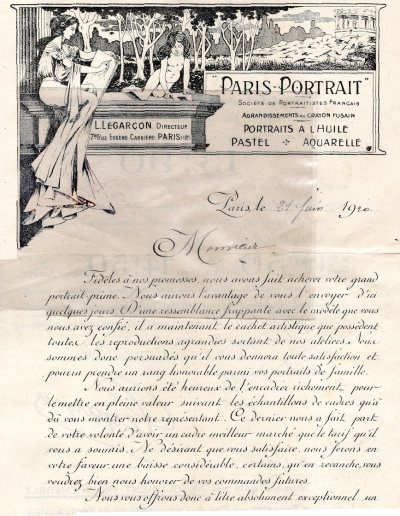 "PARIS-PORTRAIT"
SOCIÉTÉ DE PORTRAITISTES FRANÇAIS
AGRANDISSEMENTS AU CRAYON FUSAIN
PORTRAITS A L'HUILE
PASTEL AQUARELLE
L. LEGARÇON DIRECTEUR
7 RUE EUGÈNE CARRIÈRE PARIS (18
Paris, le 21 Juin 1920
Monsieur
Fidèles à nos promesses, nous avons fait achever votre grand
portrait-prime. Nous aurons l'avantage de vous l'envoyer d'ici
quelques jours. D'une ressemblance frappante avec le modèle que vous
nous avez confié, il a maintenant le cachet artistique que possèdent
toutes les reproductions agrandies sortant de nos ateliers. Nous
sommes donc persuadés qu'il vous donnera toute satisfaction et
pourra prendre un rang honorable parmi vos portraits de famille.
Nous aurions été heureux de l'encadrer richement pour
le mettre en pleine valeur suivant les échantillons de cadres qu'a
dû vous montrer notre représentant. Ce dernier nous a fait part
de votre volonté d'avoir un cadre meilleur marché que le tarif qu'il
vous a soumis. Ne désirant que vous satisfaire, nous ferons en
votre faveur une baisse considérable, certains, qu'en revanche, vous
voudrez bien nous honorer de vos commandes futures.
Nous vous offrons donc à titre absolument exceptionnel un